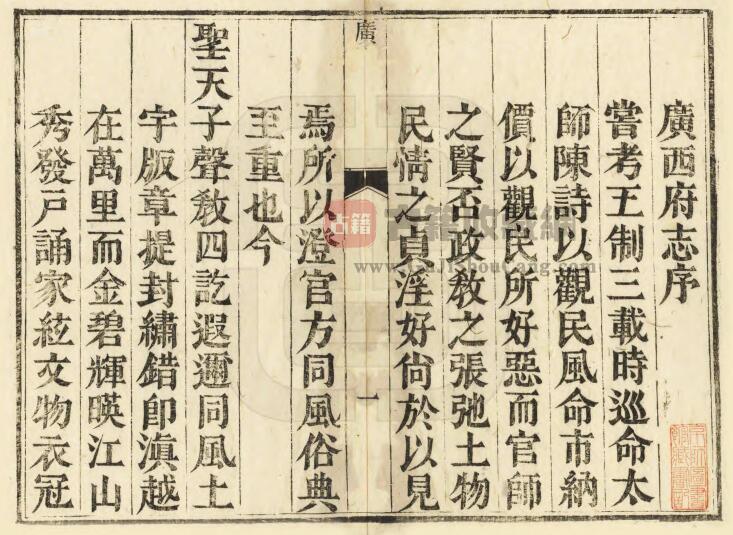 廣西府志序
嘗考王制三載時巡命太
師陳詩以觀民風命市納
價以觀民所好惡而官師
之賢否政教之張弛土物
民情之貞淫好尙於以見
廣
一
焉所以澄官方同風俗典
至重也今
聖天子聲敎四訖遐邇同風土
宇版章提封繡錯卽滇越
在萬里而金碧輝暎江山
秀發戸誦家絃文物衣冠
古籍